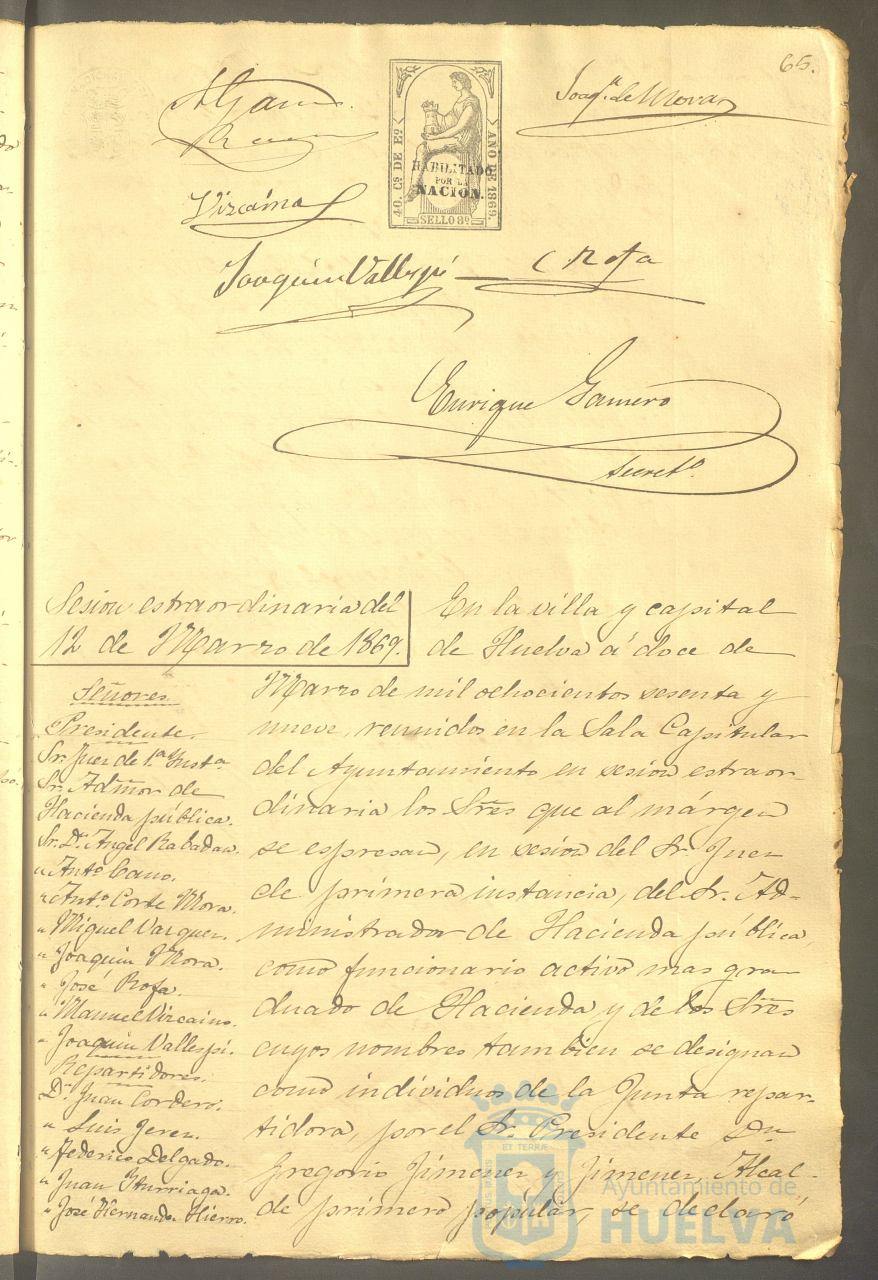 65.
Joaqn. de Mora
40. Cs DE Eo.
AÑO DE 1869.
HABILITADO
POR LA
NACION.
SELLO 8º
Vizcaino
Joaquin Vallespi
Rofa
Enrique Gamero
Secreto.
Sesion estraordinaria del
12 de Marzo de 1869.
Señores
Presidente.
Sr. Juez de 1ª. Insta.
Sr. Admor de
Hacienda pública.
Sr. Dn. Ángel Rabadan.
" Anto. Cano.
" Anto. Corte Mora.
" Miguel Vazquez.
" Joaquin Mora.
" José Rofa.
" Manuel Vizcaino.
" Joaquin Vallespi.
Repartidores.
Dn. Juan Cordero.
" Luis Jerez.
" Federico Delgado.
" Juan Iturriaga.
" José Hernando Hierro.
En la villa y capital
de Huelva á doce de
Marzo de mil ochocientos sesenta y
nueve, reunidos en la Sala Capitular
del Ayuntamiento en sesion estraor-
dinaria los Sres que al márgen
se espresan, en sesion del Sr. Juez
de primera instancia, del Sr. Ad-
ministrador de Hacienda pública,
como funcionario activo mas gra-
duado de Hacienda y de los Sres
cuyos nombres tambien se designan
como individuos de la Junta repar-
tidora, por el Sr. Presidente Dn
Gregorio Jimenez y Jimenez Alcal-
de primero popular, se declaró
Ayuntamiento de
HUELVA